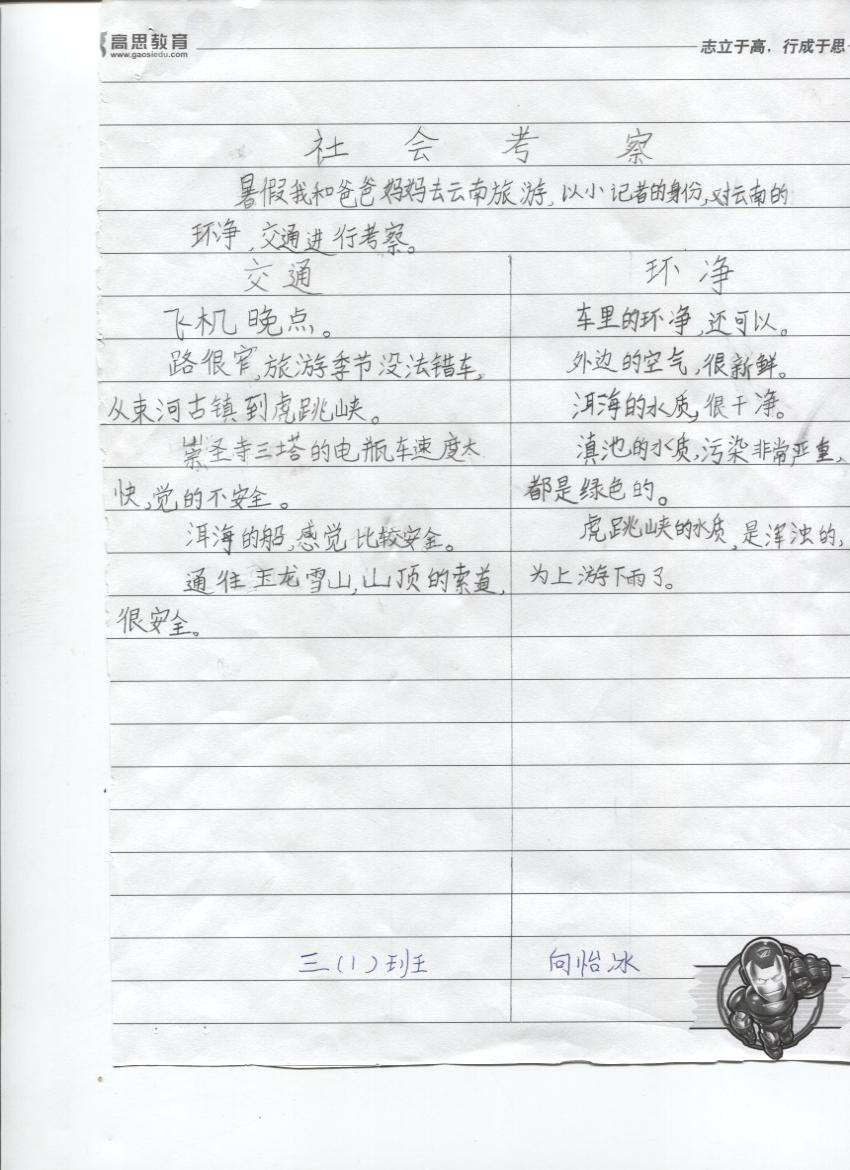 高思教育
www.gaosiedu.com
志立于高，行成于思
社会考察
暑假我和爸爸妈妈去云南旅游，以小记者的身份，对云南的
环净，交通进行考察。
交通
飞机晚点。
路很窄，旅游季节没法错车，
从束河古镇到虎跳峡。
崇圣寺三塔的电瓶车速度太
快，觉的不安全。
洱海的船，感觉比较安全。
通往玉龙雪山，山顶的索道，
很安全。
环净
车里的环净，还可以。
外边的空气，很新鲜。
洱海的水质，很干净。
滇池的水质，污染非常严重，
都是绿色的。
虎跳峡的水质，是浑浊的，
为上游下雨了。
三（1）班
向怡冰